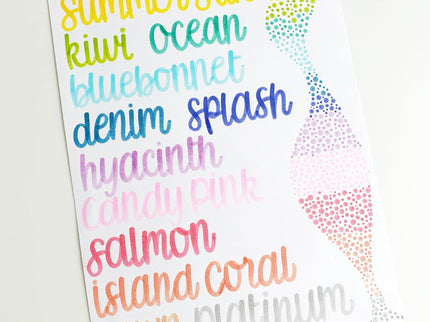 summer sun
kiwi ocean
bluebonnet
denim splash
hyacinth
candy pink
salmon
island coral
platinum